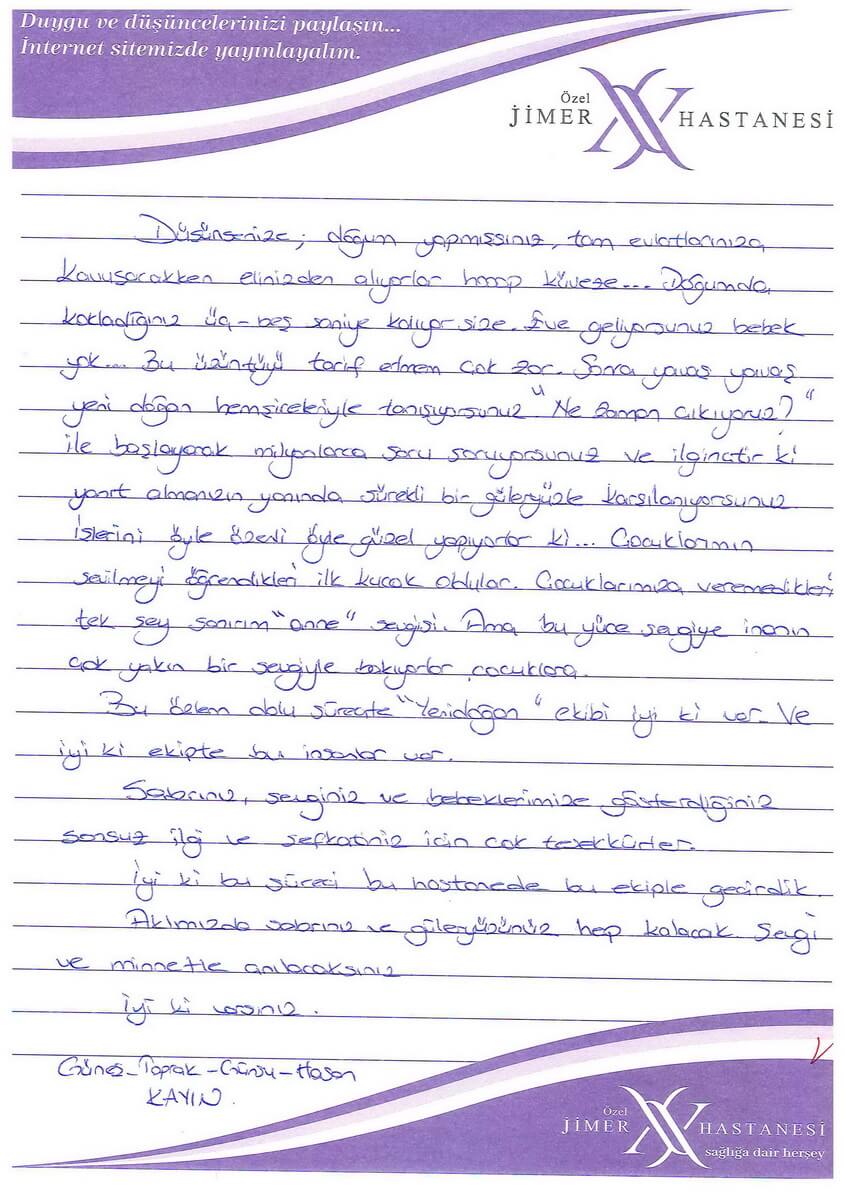 Duygu ve düşüncelerinizi paylaşın...
İnternet sitemizde yayınlayalım.
Özel
JİMER HASTANESİ
Düşünsenize; doğum yapmışsınız, tam evlatlarınıza
kavuşacakken elinizden alıyorlar hoop küveze... Doğumda
kokladığınız üç-beş saniye kalıyor size. Eve geliyorsunuz bebek
yok... Bu üzüntüyü tarif etmem çok zor. Sonra yavaş yavaş
yeni doğan hemşireleriyle tanışıyorsunuz "Ne zaman çıkıyoruz?"
ile başlayarak milyonlarca soru soruyorsunuz ve ilginçtir ki
yanıt almanızın yanında sürekli bir güleryüzle karşılanıyorsunuz
İşlerini öyle özenli öyle güzel yapıyorlar ki... Çocuklarımın
sevilmeyi öğrendikleri ilk kucak oldular. Çocuklarımıza veremedikleri
tek şey sanırım "anne" sevgisi. Ama bu yüce sevgiye inanın
çok yakın bir sevgiyle bakıyorlar çocuklara.
Bu özlem dolu süreçte "Yenidoğan" ekibi iyi ki var. Ve
iyi ki ekipte bu insanlar var.
Sabrınız, sevginiz ve bebeklerimize gösterdiğiniz
sonsuz ilgi ve şefkatiniz için çok teşekkürler.
İyi ki bu süreci bu hastanede bu ekiple geçirdik.
Aklımızda sabrınız ve güleryüzünüz hep kalacak. Sevgi
ve minnetle anılacaksınız
İyi ki varsınız.
Güneş-Toprak-Günsu-Hasan
KAYIN.
Özel
JİMER HASTANESİ
sağlığa dair herşey